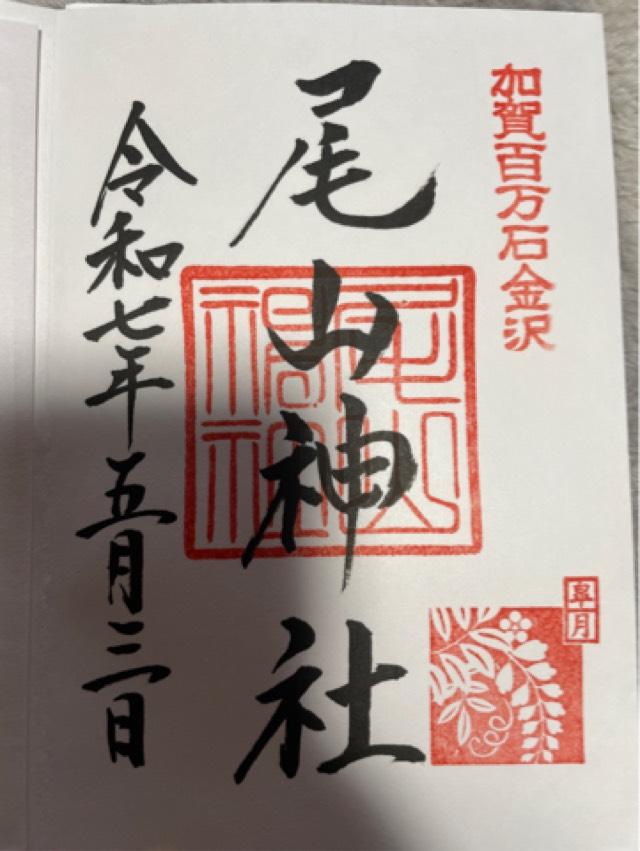 加賀百万石金沢
尾山神社
皐月
令和七年五月三日